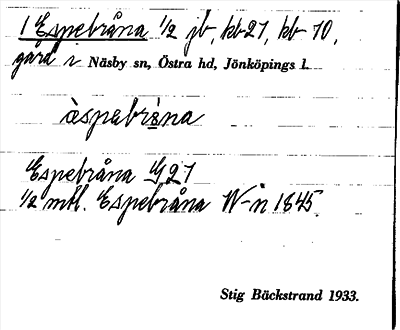 1 Espebråna 1/2 jb, kb 21, hb 10,
gård i Näsby sn, Östra hd, Jönköpings l.
àspabrɩ̀na
Espebråna G 21
1/2 mtl. Espebråna W-n 1845
Stig Bäckstrand 1933.